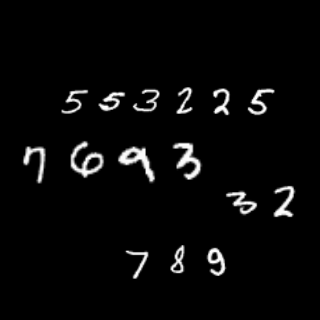 553225
7693
32
789